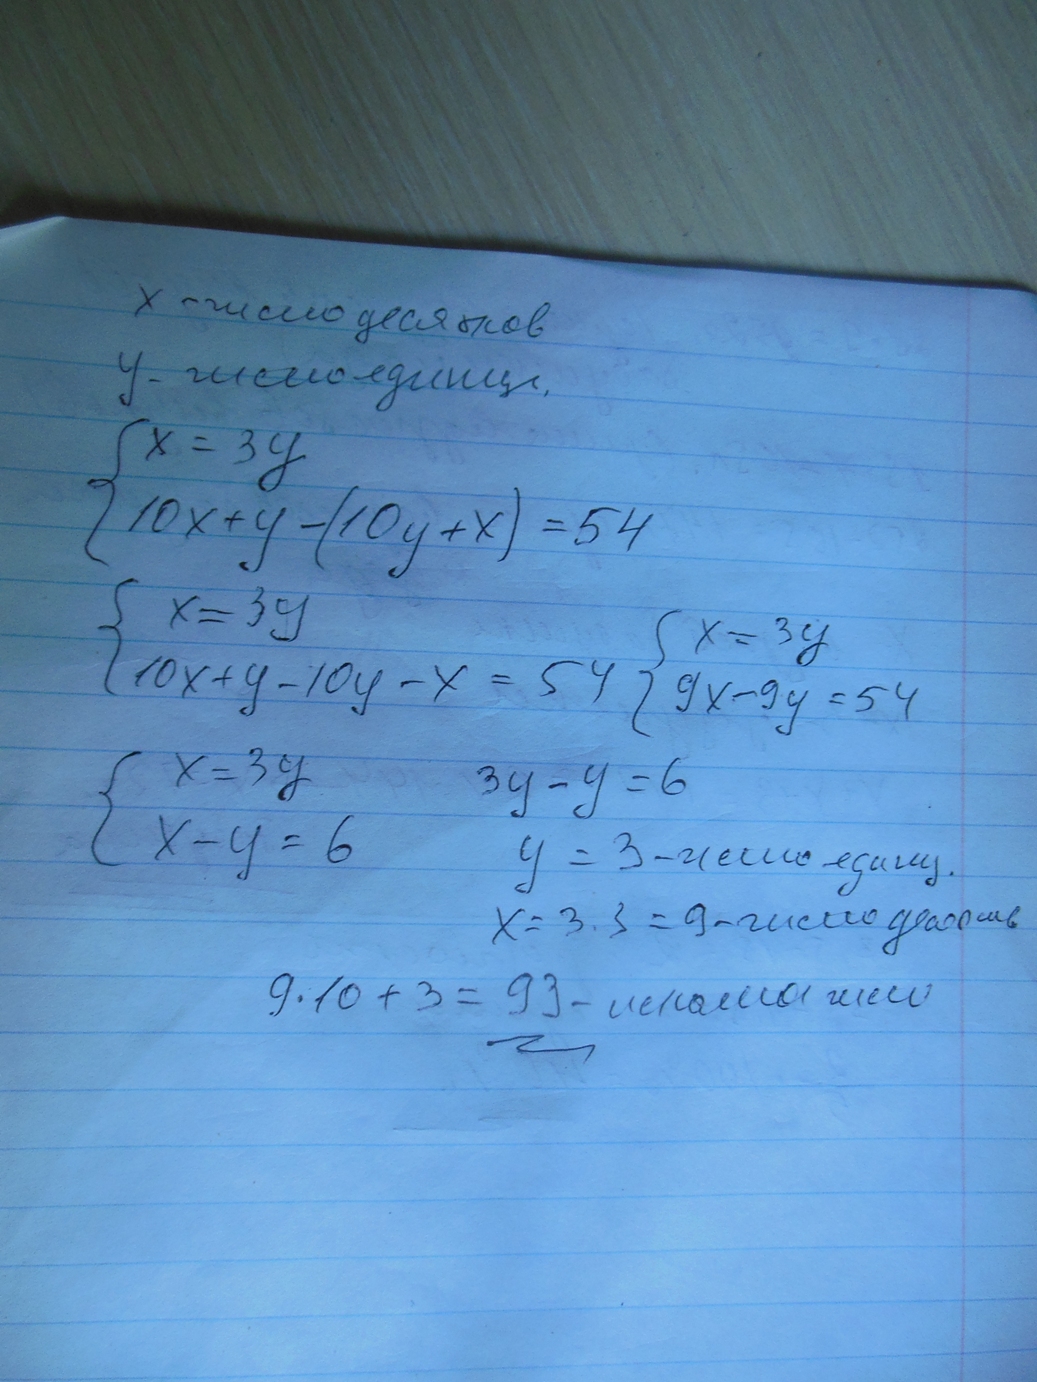 x - число десятков
y - число единиц.
{ x = 3y
10x + y - (10y + x) = 54
{ x = 3y
10x + y - 10y - x = 54
{ x = 3y
9x - 9y = 54
{ x = 3y
x - y = 6
3y - y = 6
y = 3 - число единиц.
x = 3 · 3 = 9 - число десятков
9 · 10 + 3 = 93 - искомое число